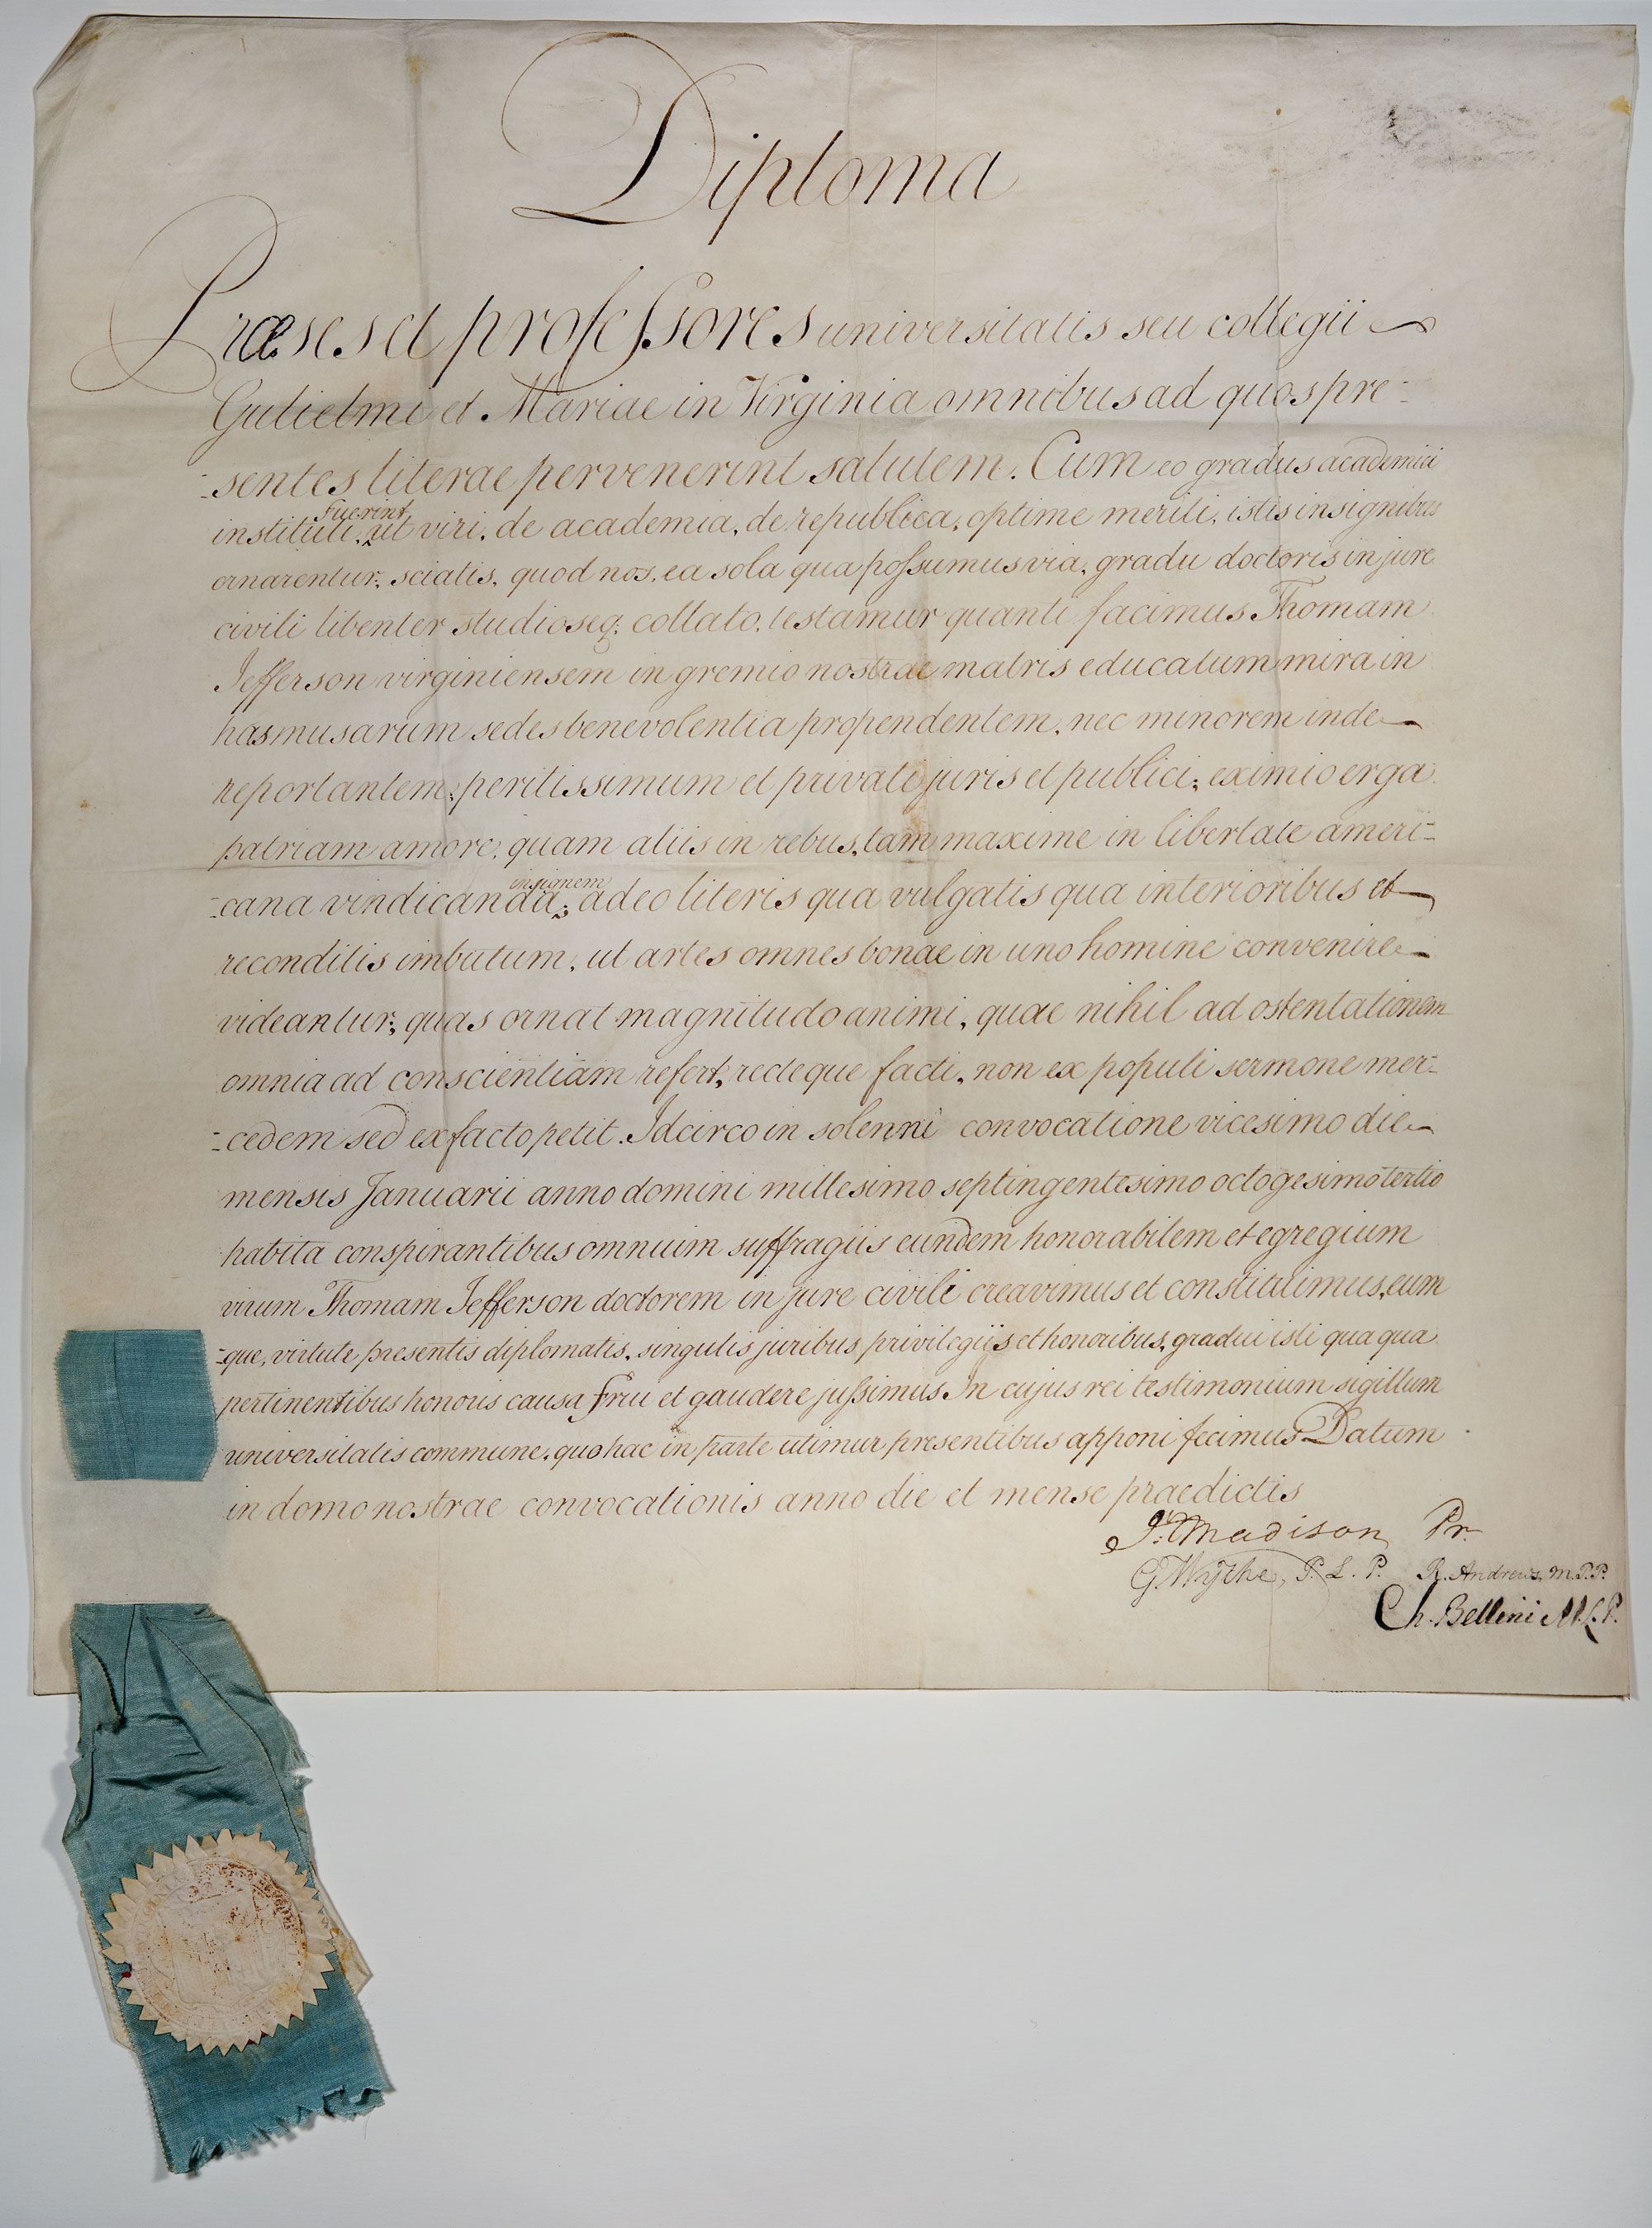 Diploma
Præses et professores universitatis seu collegii
Gulielmi et Mariae in Virginia omnibus ad quos pre-
-sentes literae pervenerint salutem. Cum eo gradus academici
instituti fuerint, ut viri, de academia, de republica, optime meriti, istis insignibus
ornarentur; sciatis, quod nos, ea sola qua possumus via, gradu doctoris in jure
civili libenter studioseq; collato, testamur quanti facimus Thomam
Jefferson virginiensem in gremio nostrae matris educatum mira in
has musarum sedes benevolentia propendentem, nec minorem inde
reportantem; peritissimum et privati juris et publici; eximio erga
patriam amore, quam aliis in rebus, tam maxime in libertate ameri-
-cana vindicanda insignem; adeo literis qua vulgatis qua interioribus et
reconditis imbutum, ut artes omnes bonae in uno homine convenire
videantur; quas ornat magnitudo animi, quae nihil ad ostentationem
omnia ad conscientiam refert, recteque facti, non ex populi sermone mer-
-cedem sed ex facto petit. Idcirco in solenni convocatione vicesimo die
mensis Januarii anno domini millesimo septingentesimo octogesimo tertio
habita conspirantibus omnium suffragiis eundem honorabilem et egregium
virum Thomam Jefferson doctorem in jure civili creavimus et constituimus, eum
-que, virtute presentis diplomatis, singulis juribus privilegiis et honoribus, gradui isti quaqua
pertinentibus honoris causa frui et gaudere jussimus In cujus rei testimonium sigillum
universitatis commune, quo hac in parte utimur presentibus apponi fecimus Datum
in domo nostrae convocationis anno die et mense praedictis
J. Madison Pr.
G. Wythe, P. L. P. R. Andrews, M.P.P.
Ch. Bellini M.L.P.